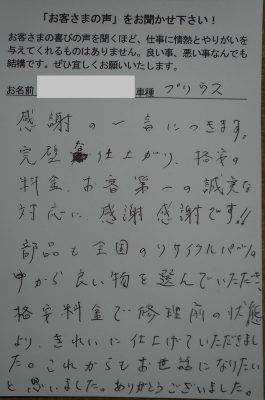 「お客さまの声」をお聞かせ下さい！
お客さまの喜びの声を聞くほど、仕事に情熱とやりがいを
与えてくれるものはありません。良い事、悪い事なんでも
結構です。ぜひ宜しくお願いいたします。
お名前 車種 プリウス
感謝の一言につきます。
完璧な仕上がり、格安の
料金、お客第一の誠実な
対応に、感謝感謝です!!
部品も全国のリサイクルパーツの
中から良い物を選んでいただき、
格安料金で修理前の状態
より、きれいに仕上げていただきまし
た。これからもお世話になりたい
と思いました。ありがとうございました。